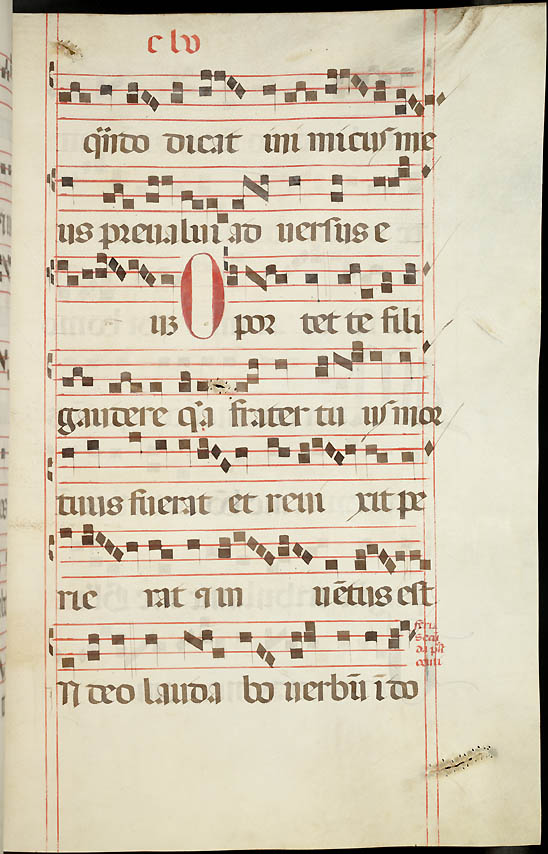 clv
qñdo dicat inimicus me
us preualui aduersus e
uz Oportet te fili
gaudere qa frater tuus mor
tuus fuerat et reuixit pe
rierat & inuētus est
In deo laudabo uerbū ī do